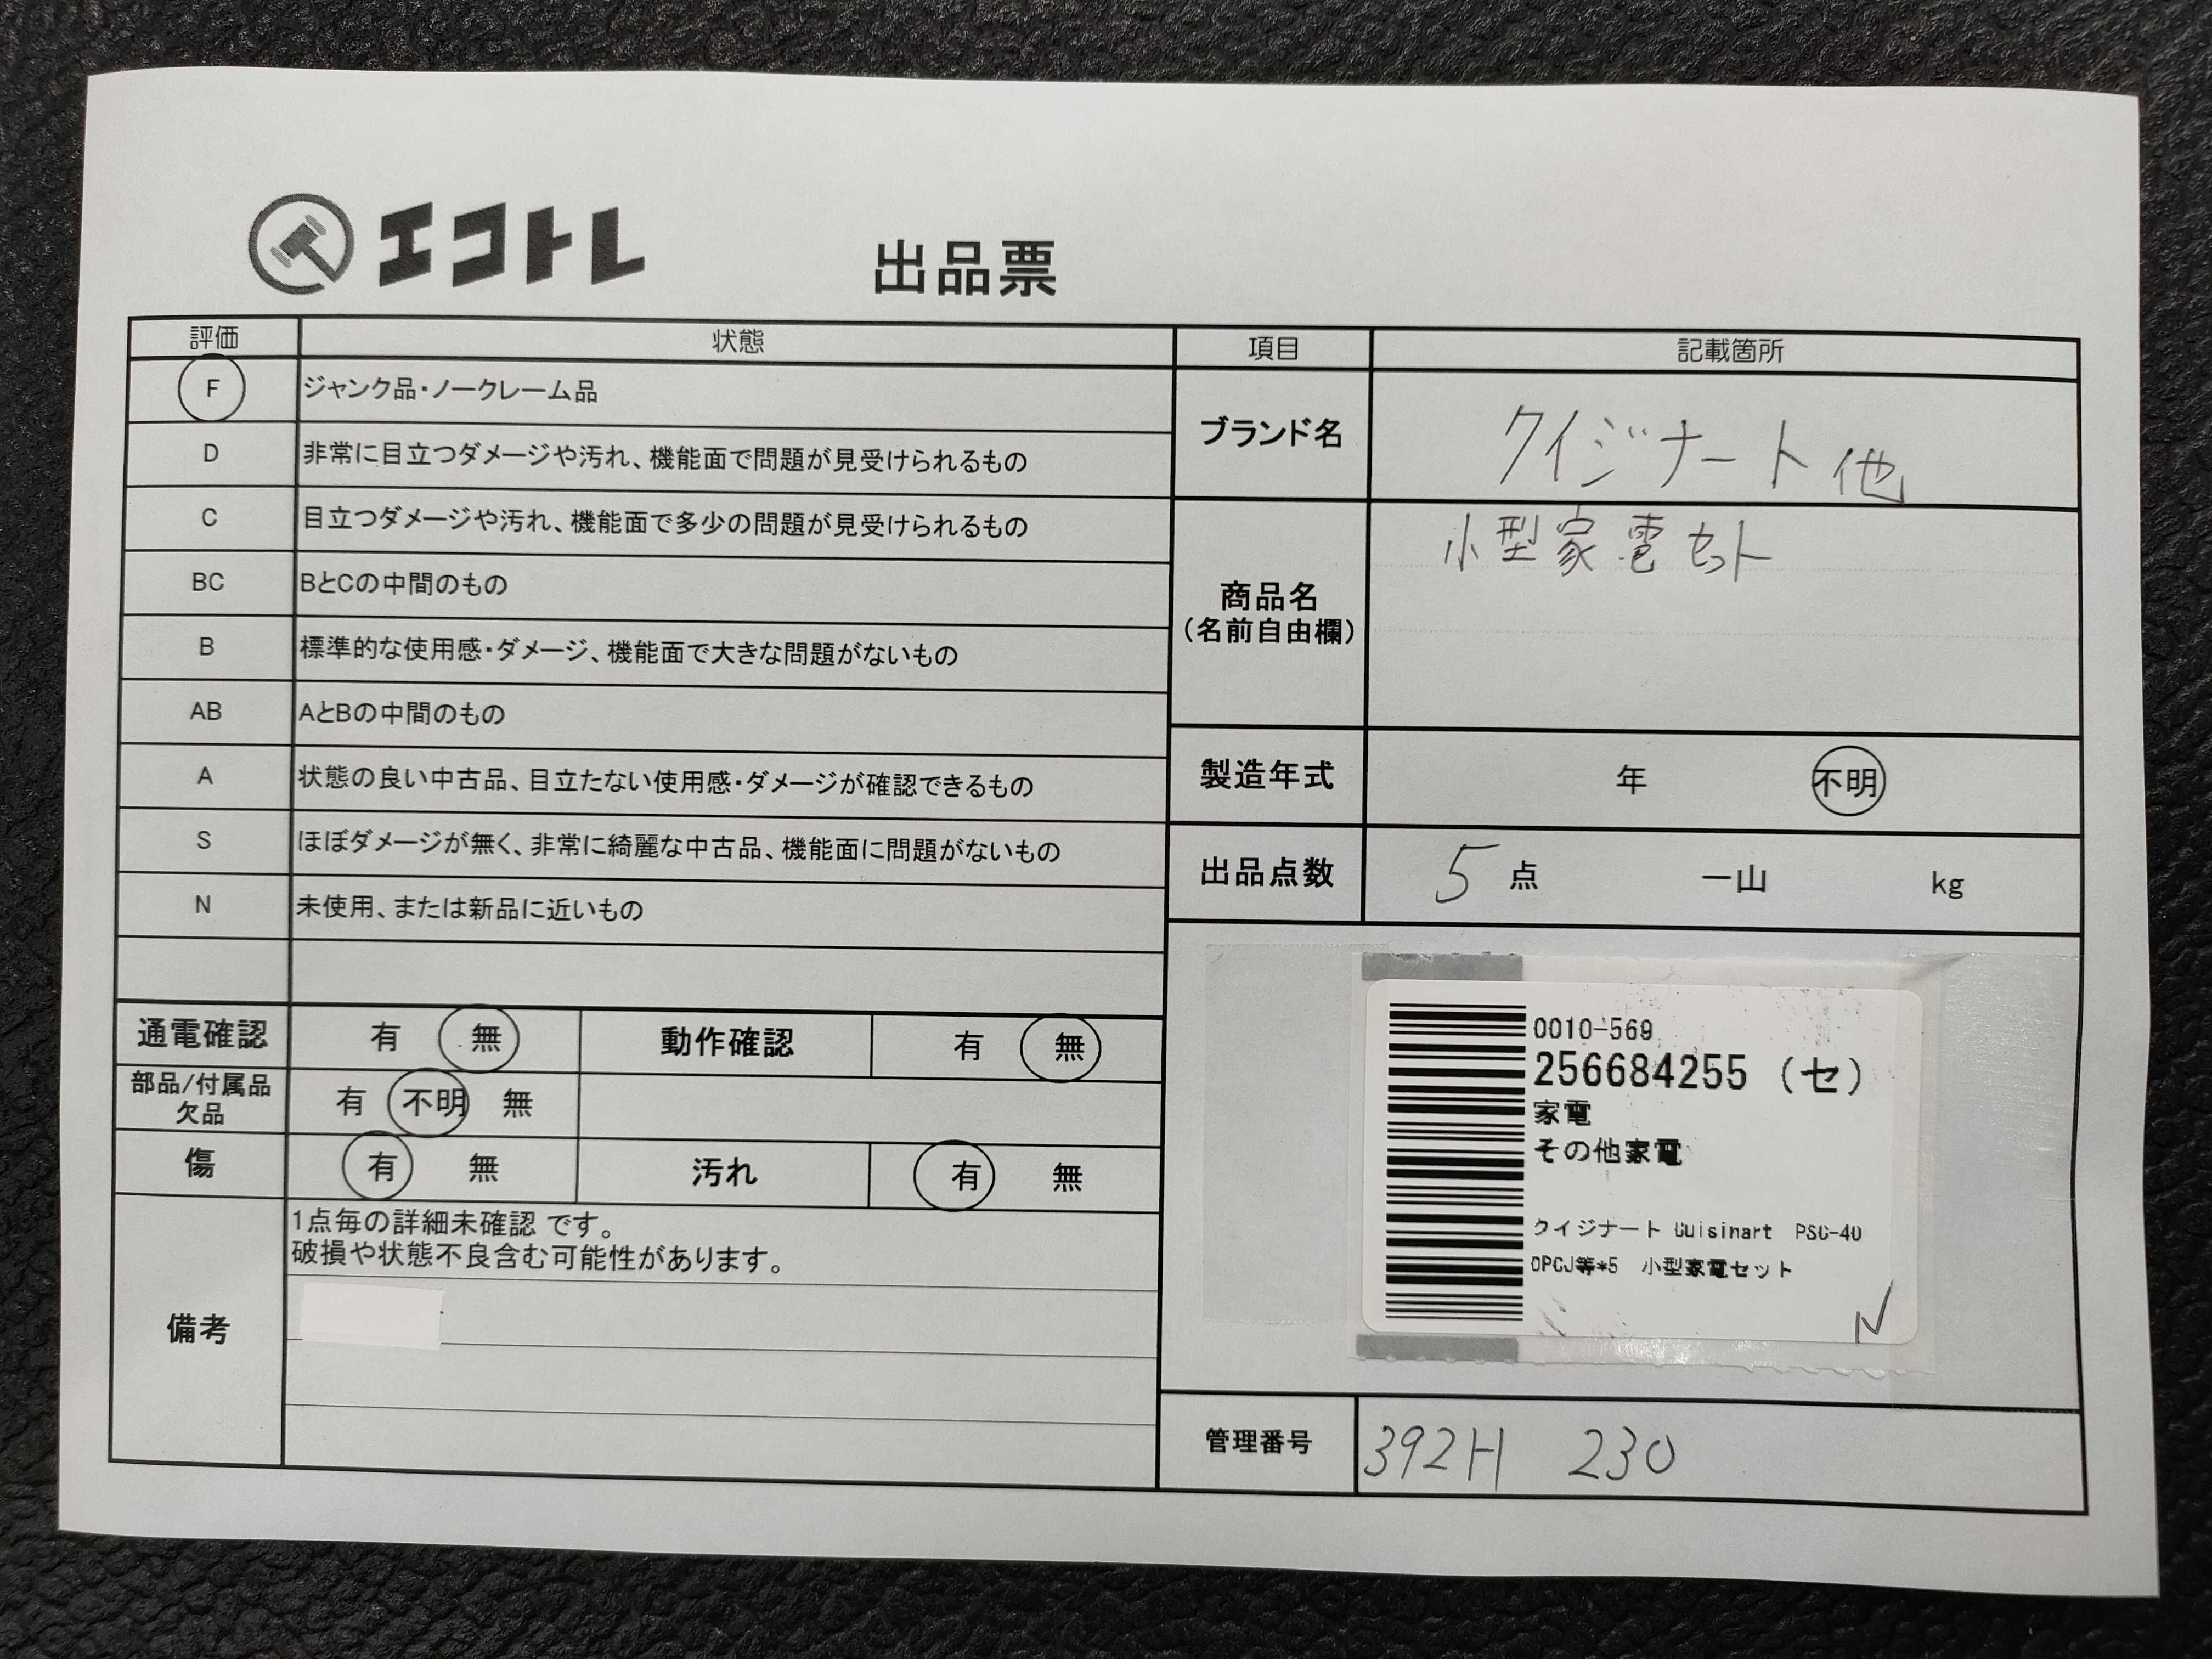 エコトレ
出品票
評価 状態
F ジャンク品・ノークレーム品
D 非常に目立つダメージや汚れ、機能面で問題が見受けられるもの
C 目立つダメージや汚れ、機能面で多少の問題が見受けられるもの
BC BとCの中間のもの
B 標準的な使用感・ダメージ、機能面で大きな問題がないもの
AB AとBの中間のもの
A 状態の良い中古品、目立たない使用感・ダメージが確認できるもの
S ほぼダメージが無く、非常に綺麗な中古品、機能面に問題がないもの
N 未使用、または新品に近いもの
通電確認 有 無 動作確認 有 無
部品/付属品
欠品 有 不明 無
傷 有 無 汚れ 有 無
備考
1点毎の詳細未確認 です。
破損や状態不良含む可能性があります。
項目 記載箇所
ブランド名 クイジナート 他
商品名
(名前自由欄)
小型家電セット
製造年式 年 不明
出品点数 5 点 一山 kg
0010-569
256684255 (セ)
家電
その他家電
クイジナート Cuisinart PSC-40
0PCJ等*5 小型家電セット
管理番号 392H 230